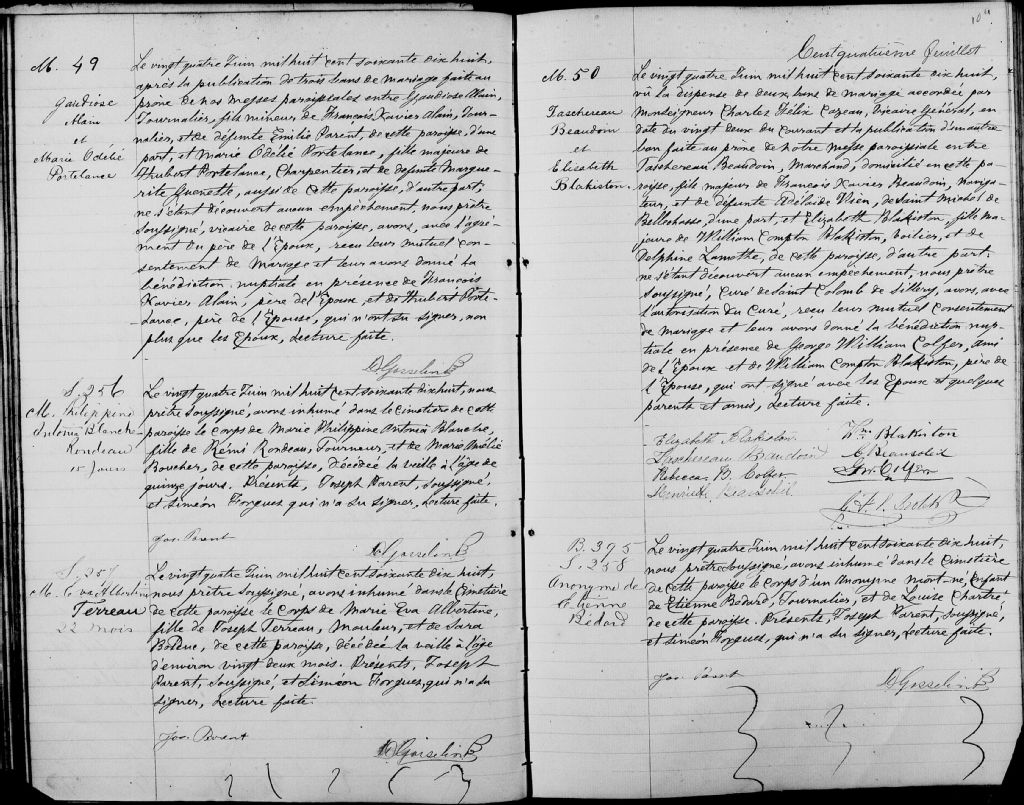 M. 49
Gaudiose
Alain
et
Marie Odélie
Portelance
Le vingt quatre Juin mil huit cent soixante dix huit,
après la publication de trois bans de mariage faite au
prône de nos messes paroissiales entre Gaudiose Alain,
Journalier, fils mineur de François Xavier Alain, Jour-
nalier, et de défunte Emilie Parent, de cette paroisse, d'une
part, et Marie Odélie Portelance, fille majeure de
Hubert Portelance, Charpentier, et de défunte Margue-
rite Guenette, aussi de cette paroisse, d'autre part;
ne s'étant découvert aucun empêchement, nous prêtre
soussigné, vicaire de cette paroisse, avons, avec l'agré-
ment du père de l'Epoux, reçu leur mutuel con-
sentement de mariage et leur avons donné la
bénédiction nuptiale en présence de François
Xavier Alain, père de l'Epoux et de Hubert Porte-
lance, père de l'Epouse, qui n'ont su signer, non
plus que les Epoux, Lecture faite.
DGosselin Ptr
S. 256
M. Philippine
Antonia Blanche
Rondeau
15 Jours
Le vingt quatre Juin mil huit cent soixante dix huit, nous
prêtre soussigné, avons inhumé dans le Cimetière de cette
paroisse le corps de Marie Philippine Antonia Blanche,
fille de Rémi Rondeau, Tourneur, et de Marie Amélie
Boucher, de cette paroisse, décédée la veille à l'âge de
quinze jours. Présents, Joseph Parent, soussigné,
et Siméon Forgues qui n'a su signer, Lecture faite.
Jos. Parent
DGosselin Ptr
S. 257
M. Eva Albertine
Terreau
22 mois
Le vingt quatre Juin mil huit cent soixante dix huit,
nous prêtre soussigné, avons inhumé dans le Cimetière
de cette paroisse le corps de Marie Eva Albertine,
fille de Joseph Terreau, Mouleur, et de Sara
Bolduc, de cette paroisse, décédée la veille à l'âge
d'environ vingt deux mois. Présents, Joseph
Parent, soussigné, et Siméon Forgues, qui n'a su
signer, Lecture faite.
Jos. Parent
DGosselin Ptr
104
Cent quatrième feuillet
M. 50
Taschereau
Beaudoin
et
Elizabeth
Blakiston.
Le vingt quatre Juin mil huit cent soixante dix huit,
vû la dispense de deux bans de mariage accordée par
Monseigneur Charles Félix Cazeau, Vicaire Général, en
date du vingt deux du courant et la publication d'un autre
ban faite au prône de notre messe paroissiale entre
Taschereau Beaudoin, Marchand, domicilié en cette pa-
roisse, fils majeur de François Xavier Beaudoin, Naviga-
teur, et de défunte Adélaïde Vien, de Saint Michel de
Bellechasse, d'une part, et Elizabeth Blakiston, fille ma-
jeure de William Compton Blakiston, Voilier, et de
Delphine Lamothe, de cette paroisse, d'autre part;
ne s'étant découvert aucun empêchement, nous prêtre
soussigné, Curé de Saint Colomb de Sillery, avons, avec
l'autorisation du Curé, reçu leur mutuel consentement
de mariage et leur avons donné la bénédiction nup-
tiale en présence de George William Colfer, ami
de l'Epoux et de William Compton Blakiston, père de
l'Epouse, qui ont signé avec les Epoux et quelques
parents et amis, Lecture faite.
Elizabeth Blakiston Wm Blakiston
Taschereau Beaudoin
Rebecca B. Colfer G. W. Colfer
B. 395
S. 258
Anonyme de
Etienne
Bédard
Le vingt quatre Juin mil huit cent soixante dix huit,
nous prêtre soussigné, avons inhumé dans le Cimetière
de cette paroisse le corps d'un Anonyme mort-né, Enfant
de Etienne Bédard, Journalier, et de Louise Chartré,
de cette paroisse. Présents, Joseph Parent, soussigné,
et Siméon Forgues, qui n'a su signer, Lecture faite.
Jos. Parent
DGosselin Ptr